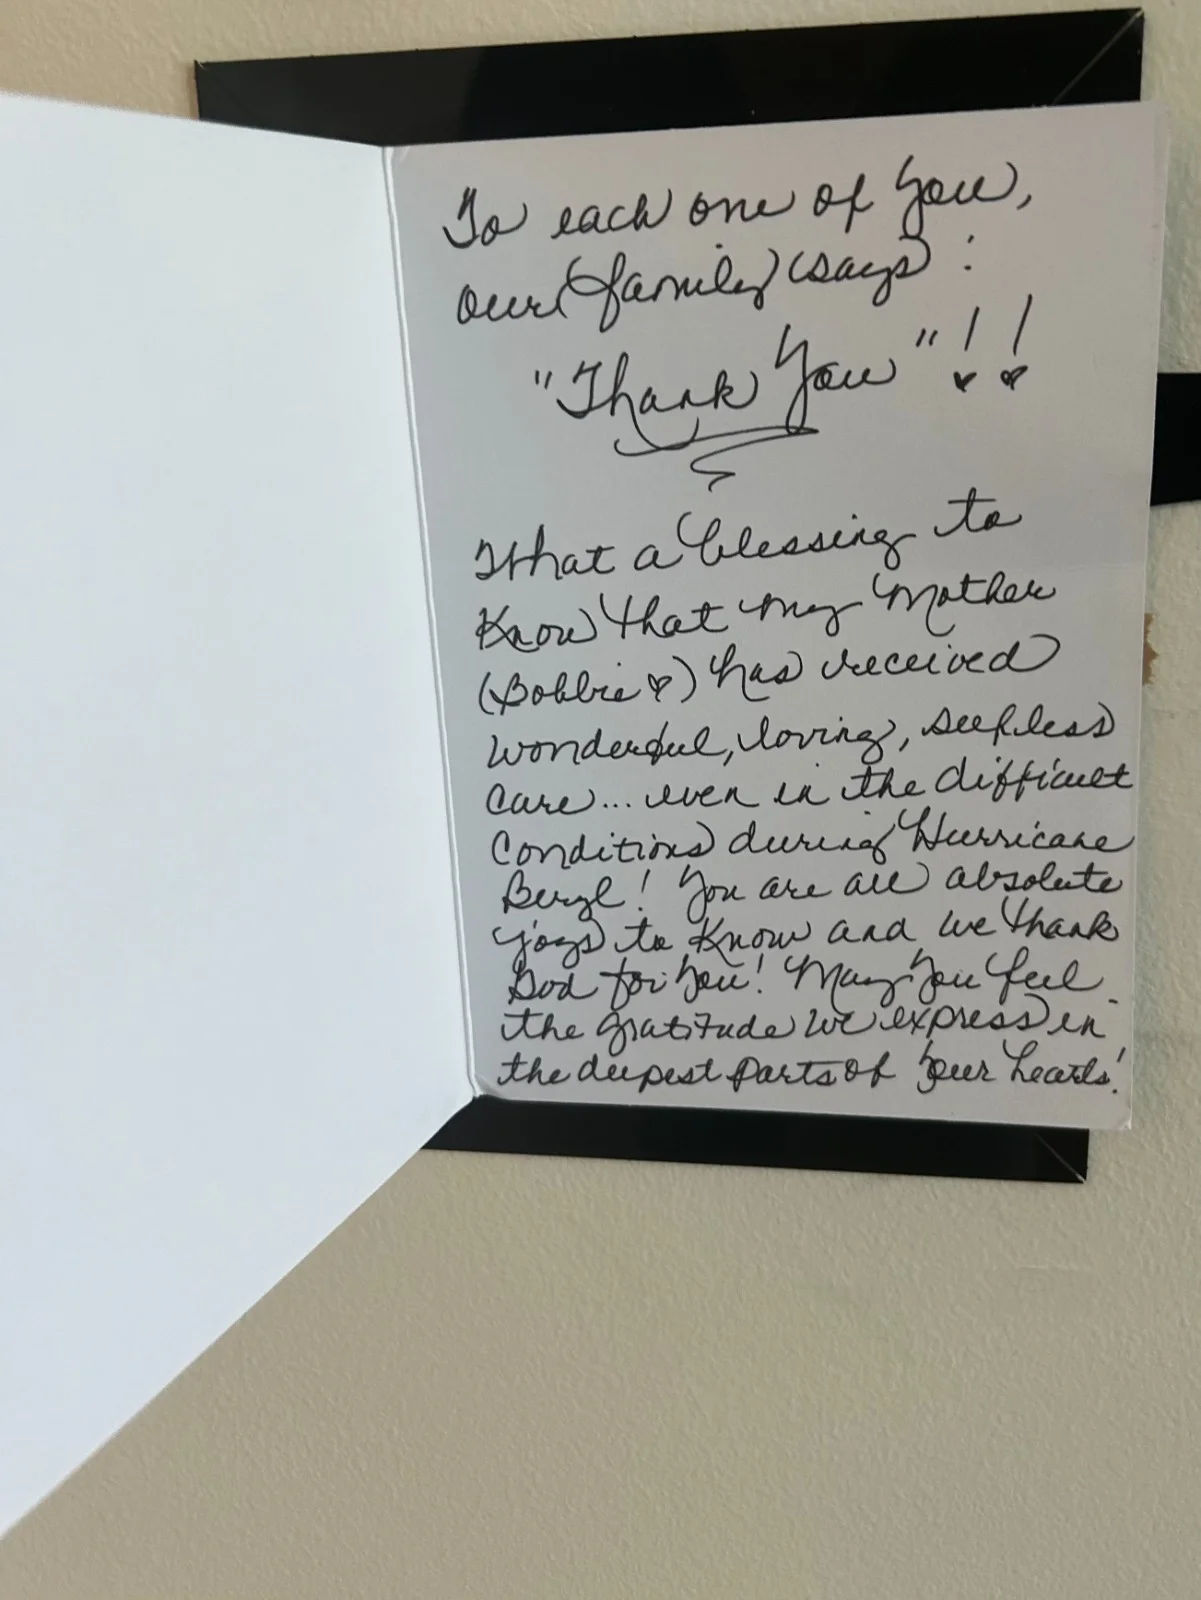 To each one of you,
our family says:
"Thank You"!!
What a blessing to
Know that my Mother
(Bobbie♡) has received
wonderful, loving, selfless
care... even in the difficult
conditions during Hurricane
Beryl! You are all absolute
joys to know and we thank
God for you! May you feel
the gratitude we express in
the deepest parts of your hearts!